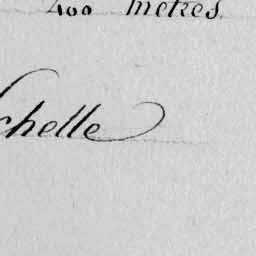 400 metres.
chelle